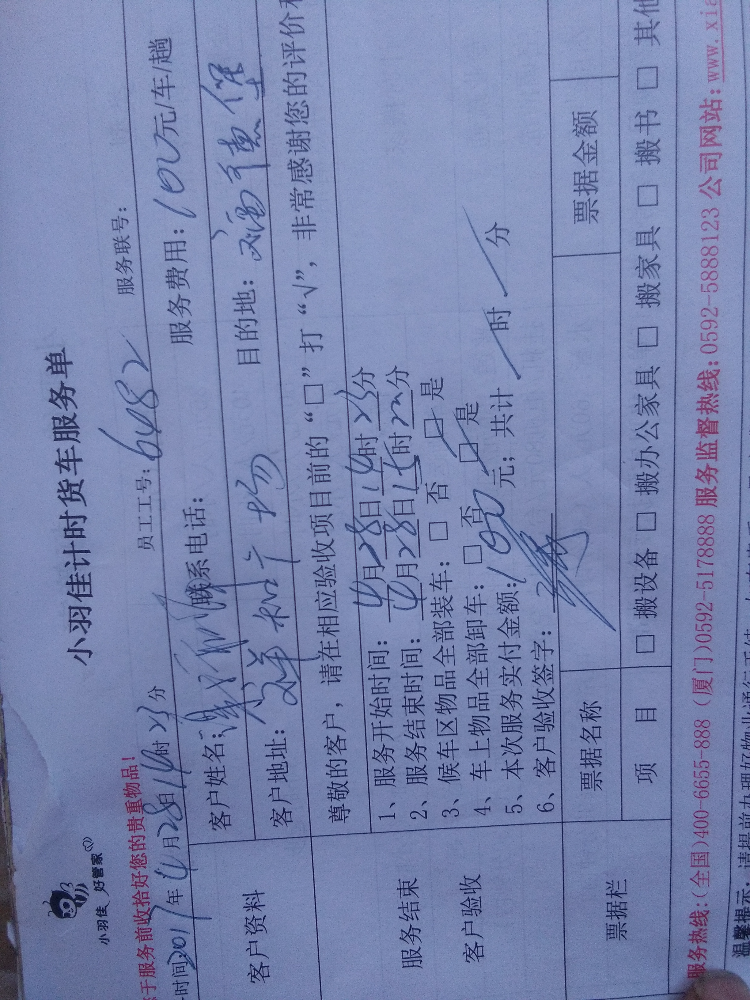 小羽佳 好管家
小羽佳计时货车服务单
于服务前收拾好您的贵重物品！
时间2011年4月28日14时23分 员工工号：6482 服务联号：
客户资料
客户姓名： 联系电话： 服务费用：100元/车/趟
客户地址： 广场 目的地：
尊敬的客户，请在相应验收项目前的“□”打“√”，非常感谢您的评价和
服务结束
客户验收
1、服务开始时间：4月28日14时23分
2、服务结束时间：4月28日15时20分
3、候车区物品全部装车：□ 否 ☑ 是
4、车上物品全部卸车：□ 否 ☑ 是
5、本次服务实付金额：100元；共计 时 分
6、客户验收签字：
票据栏
票据名称 票据金额
项 目 □ 搬设备 □ 搬办公家具 □ 搬家具 □ 搬书 □ 其他
服务热线：(全国)400-6655-888 (厦门)0592-5178888 服务监督热线：0592-5888123 公司网站：www.xia
温馨提示：请提前办理好物业通行手续